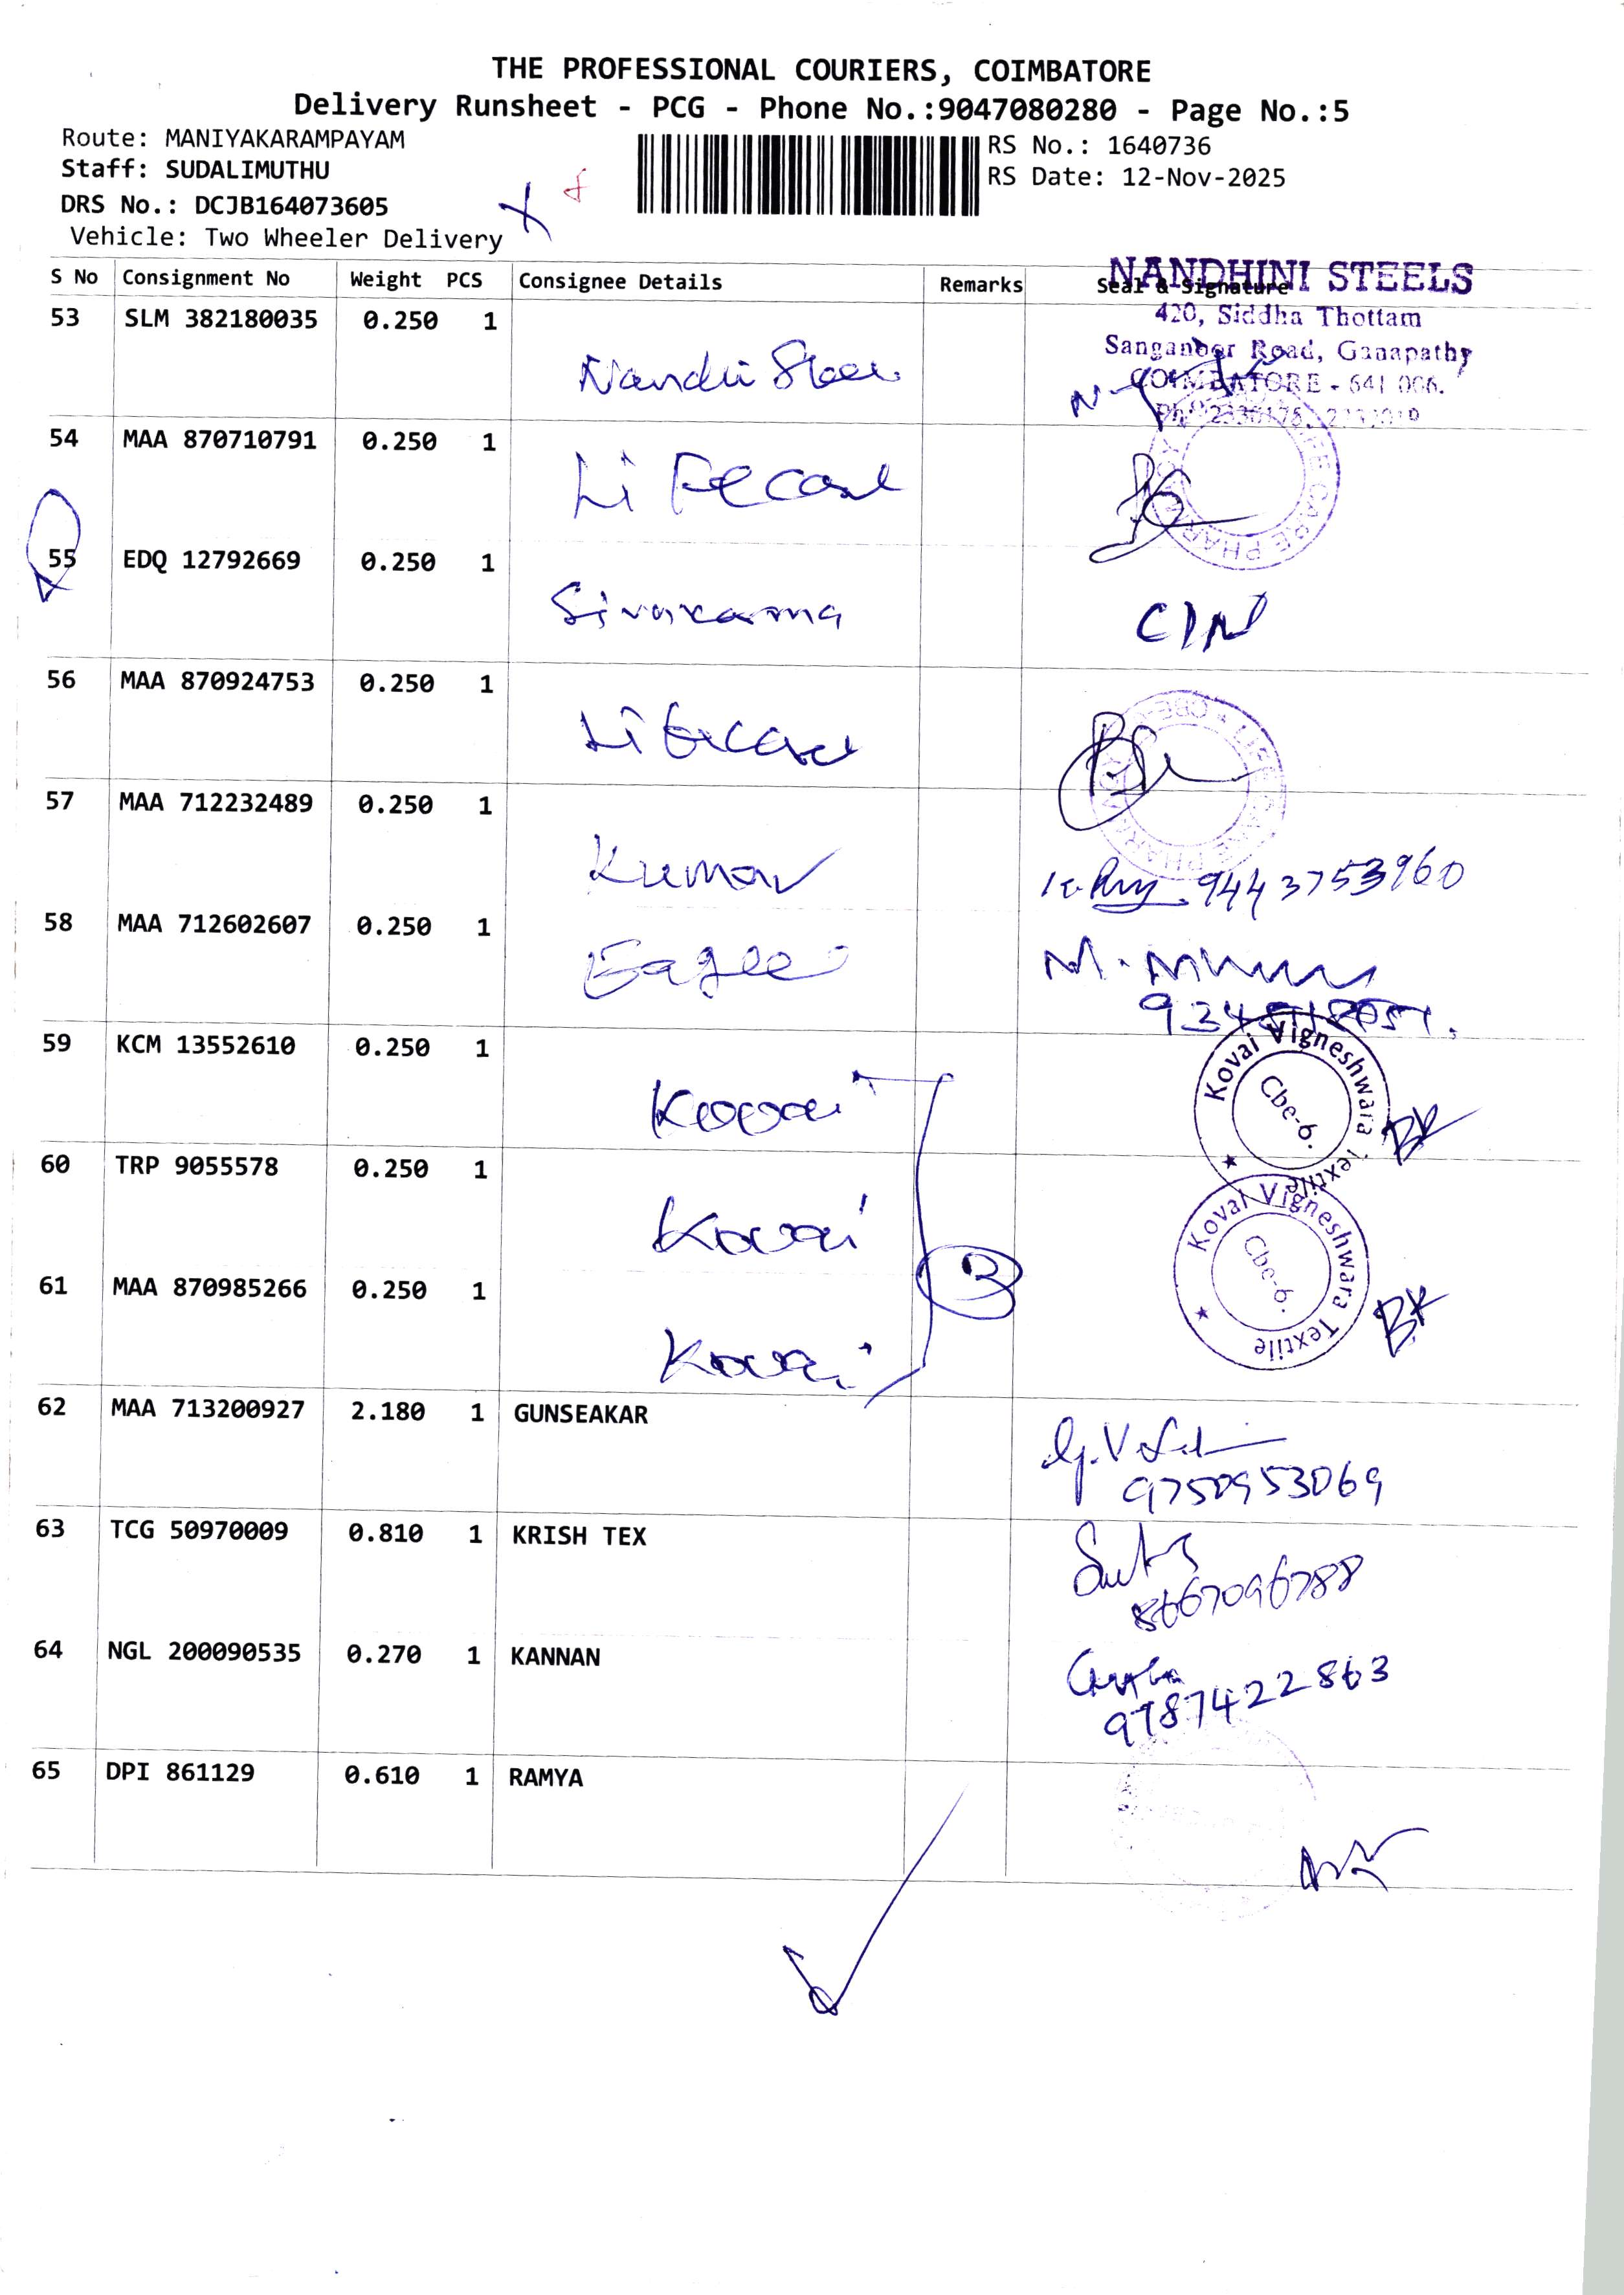 THE PROFESSIONAL COURIERS, COIMBATORE
Delivery Runsheet - PCG - Phone No.:9047080280 - Page No.:5
Route: MANIYAKARAMPAYAM
Staff: SUDALIMUTHU
DRS No.: DCJB164073605
Vehicle: Two Wheeler Delivery
RS No.: 1640736
RS Date: 12-Nov-2025
S No Consignment No Weight PCS Consignee Details Remarks Seal & Signature
NANDHINI STEELS
420, Siddha Thottam
Sanganoor Road, Ganapathy
COIMBATORE - 641 006.
53 SLM 382180035 0.250 1
54 MAA 870710791 0.250 1
Lifecare
LIFE CARE PHARMACY
55 EDQ 12792669 0.250 1
56 MAA 870924753 0.250 1
Lifecare
LIFE CARE PHARMACY
57 MAA 712232489 0.250 1
Kumar
9443753960
58 MAA 712602607 0.250 1
Eagle
59 KCM 13552610 0.250 1
Kovai
Kovai Vigneshwara Textile
Cbe-6.
BK
60 TRP 9055578 0.250 1
Kovai
3
Kovai Vigneshwara Textile
Cbe-6.
BK
61 MAA 870985266 0.250 1
Kovai
62 MAA 713200927 2.180 1 GUNSEAKAR
9750953069
63 TCG 50970009 0.810 1 KRISH TEX
8667096788
64 NGL 200090535 0.270 1 KANNAN
9787422863
65 DPI 861129 0.610 1 RAMYA